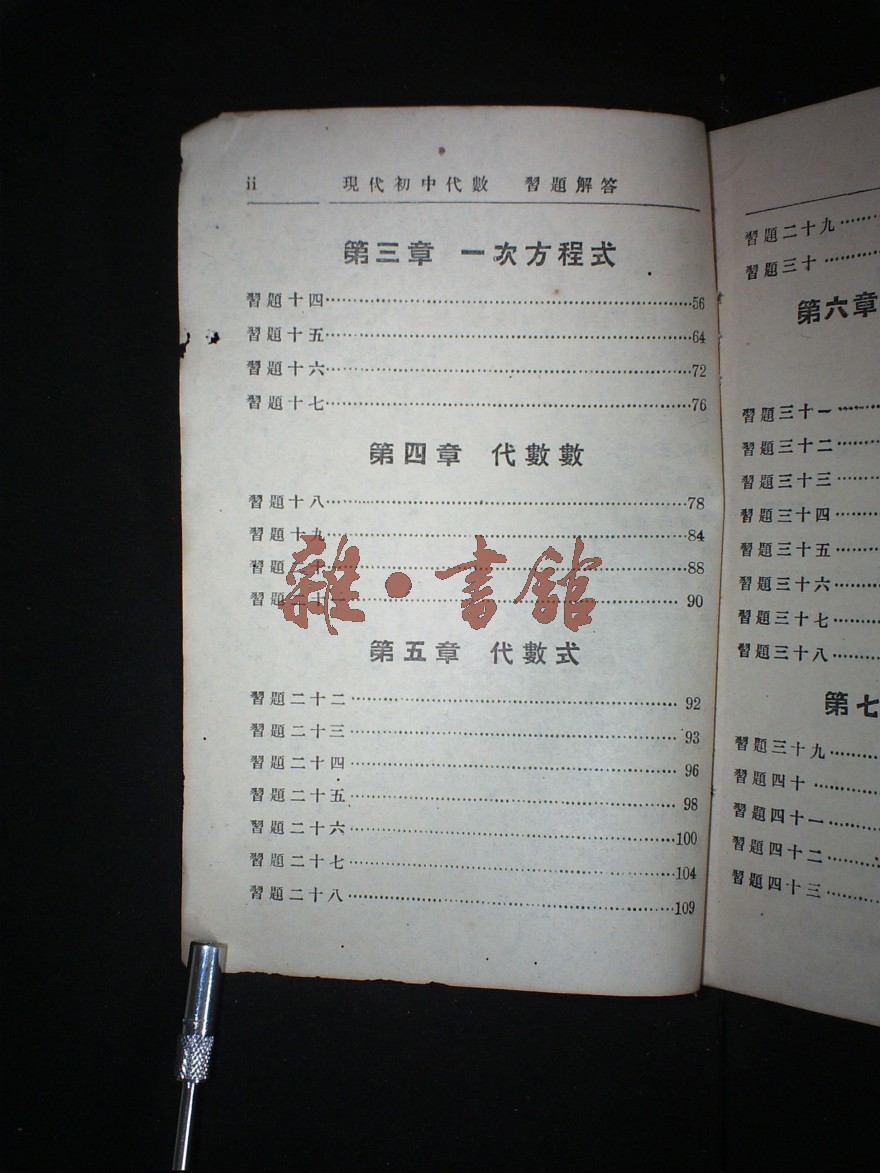 ii 現代初中代數 習題解答
第三章 一次方程式
習題十四……56
習題十五……64
習題十六……72
習題十七……76
第四章 代數數
習題十八……78
習題十九……84
習題二十……88
習題二十一……90
雜·書館
第五章 代數式
習題二十二……92
習題二十三……93
習題二十四……96
習題二十五……98
習題二十六……100
習題二十七……104
習題二十八……109
習題二十九……
習題三十……
第六章
習題三十一……
習題三十二……
習題三十三……
習題三十四……
習題三十五……
習題三十六……
習題三十七……
習題三十八……
第七
習題三十九……
習題四十……
習題四十一……
習題四十二……
習題四十三……